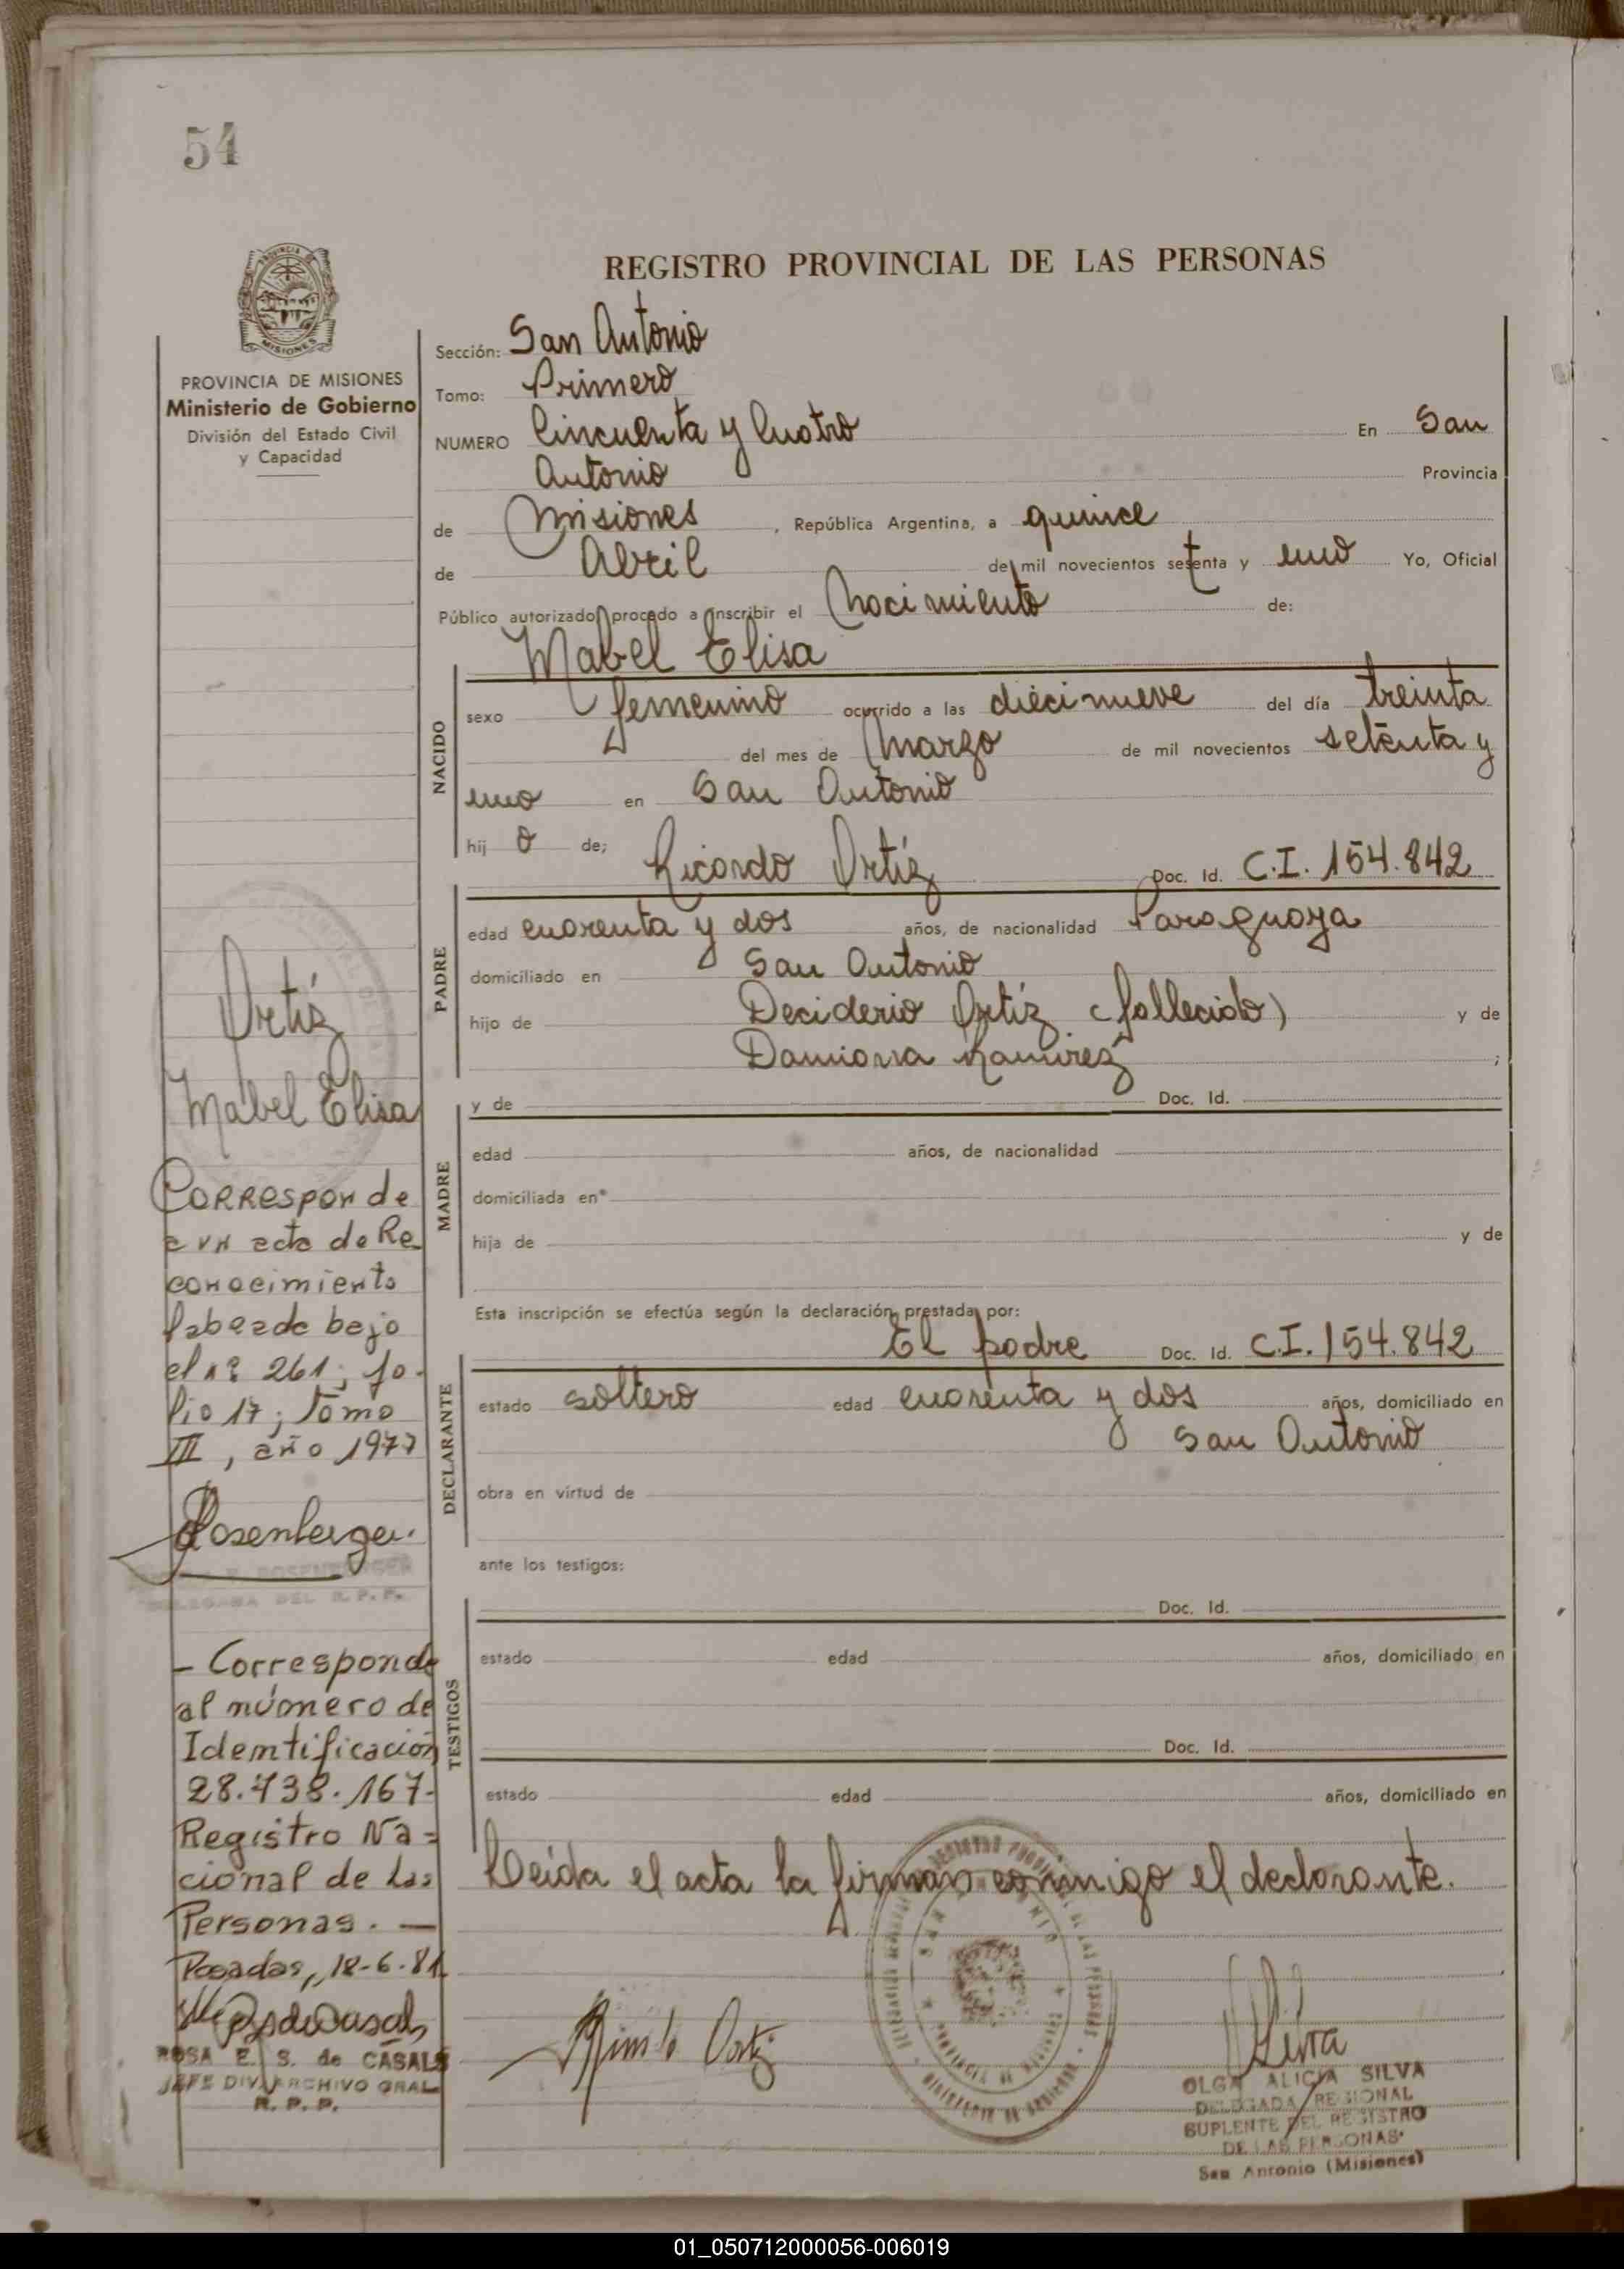 54
REGISTRO PROVINCIAL DE LAS PERSONAS
PROVINCIA DE MISIONES
Ministerio de Gobierno
División del Estado Civil
y Capacidad
Sección: San Antonio
Tomo: Primero
NUMERO Cincuenta y Cuatro En San
Antonio Provincia
de Misiones, República Argentina, a quince
de Abril de mil novecientos setenta y uno Yo, Oficial
Público autorizado, procedo a inscribir el Nacimiento de:
Mabel Elisa
NACIDO
sexo femenino ocurrido a las diecinueve del día treinta
del mes de Marzo de mil novecientos setenta y
uno en San Antonio
hij o de; Ricardo Ortíz Doc. Id. C.I. 154.842
PADRE
edad cuarenta y dos años, de nacionalidad Paraguaya
domiciliado en San Antonio
hijo de Deciderio Ortíz (fallecido) y de
Damiana Ramirez ;
y de Doc. Id.
MADRE
edad años, de nacionalidad
domiciliada en
hija de y de
Esta inscripción se efectúa según la declaración prestada por:
El padre Doc. Id. C.I. 154.842
DECLARANTE
estado soltero edad cuarenta y dos años, domiciliado en
San Antonio
obra en virtud de
ante los testigos:
Doc. Id.
TESTIGOS
estado edad años, domiciliado en
Doc. Id.
estado edad años, domiciliado en
Leída el acta la firman conmigo el declarante.
Ortíz
Mabel Elisa
Corresponde
a un acta de Re
conocimiento
labrada bajo
el nº 261; fo-
lio 17; Tomo
III, año 1977
Rosenberger.
DELEGADA DEL R.P.P.
- Corresponde
al número de
Identificación
28.738.167-
Registro Na=
cional de Las
Personas. —
Posadas, 18-6-81
ROSA E. S. de CASALS
JEFE DIV. ARCHIVO GRAL
R. P. P.
Ortiz
Silva
OLGA ALICIA SILVA
DELEGADA REGIONAL
SUPLENTE DEL REGISTRO
DE LAS PERSONAS
San Antonio (Misiones)
01_050712000056-006019